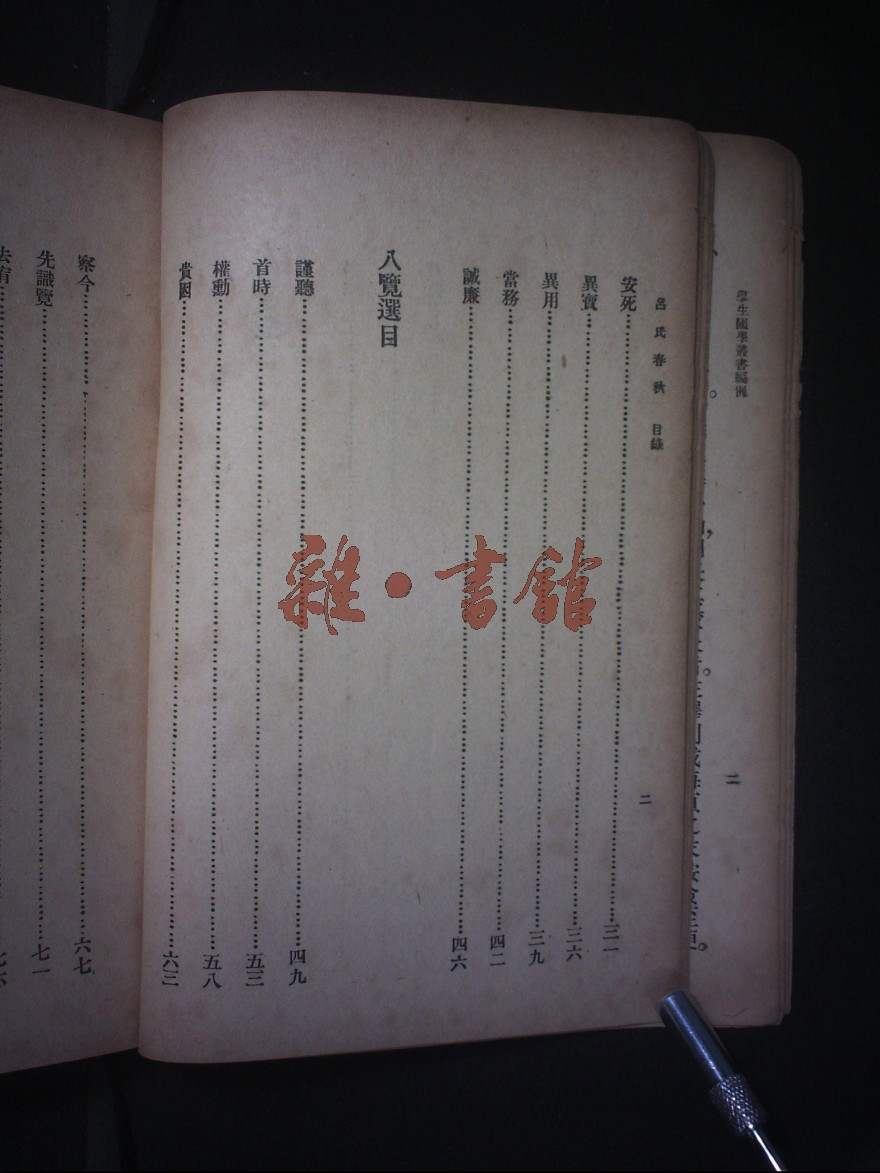 學生國學叢書編例
二
呂氏春秋 目錄
二
安死……三一
異寶……三六
異用……三九
當務……四二
誠廉……四六
八覽選目
謹聽……四九
首時……五三
權勳……五八
貴因……六三
察今……六七
先識覽……七一
去宥……七六
雜·書館